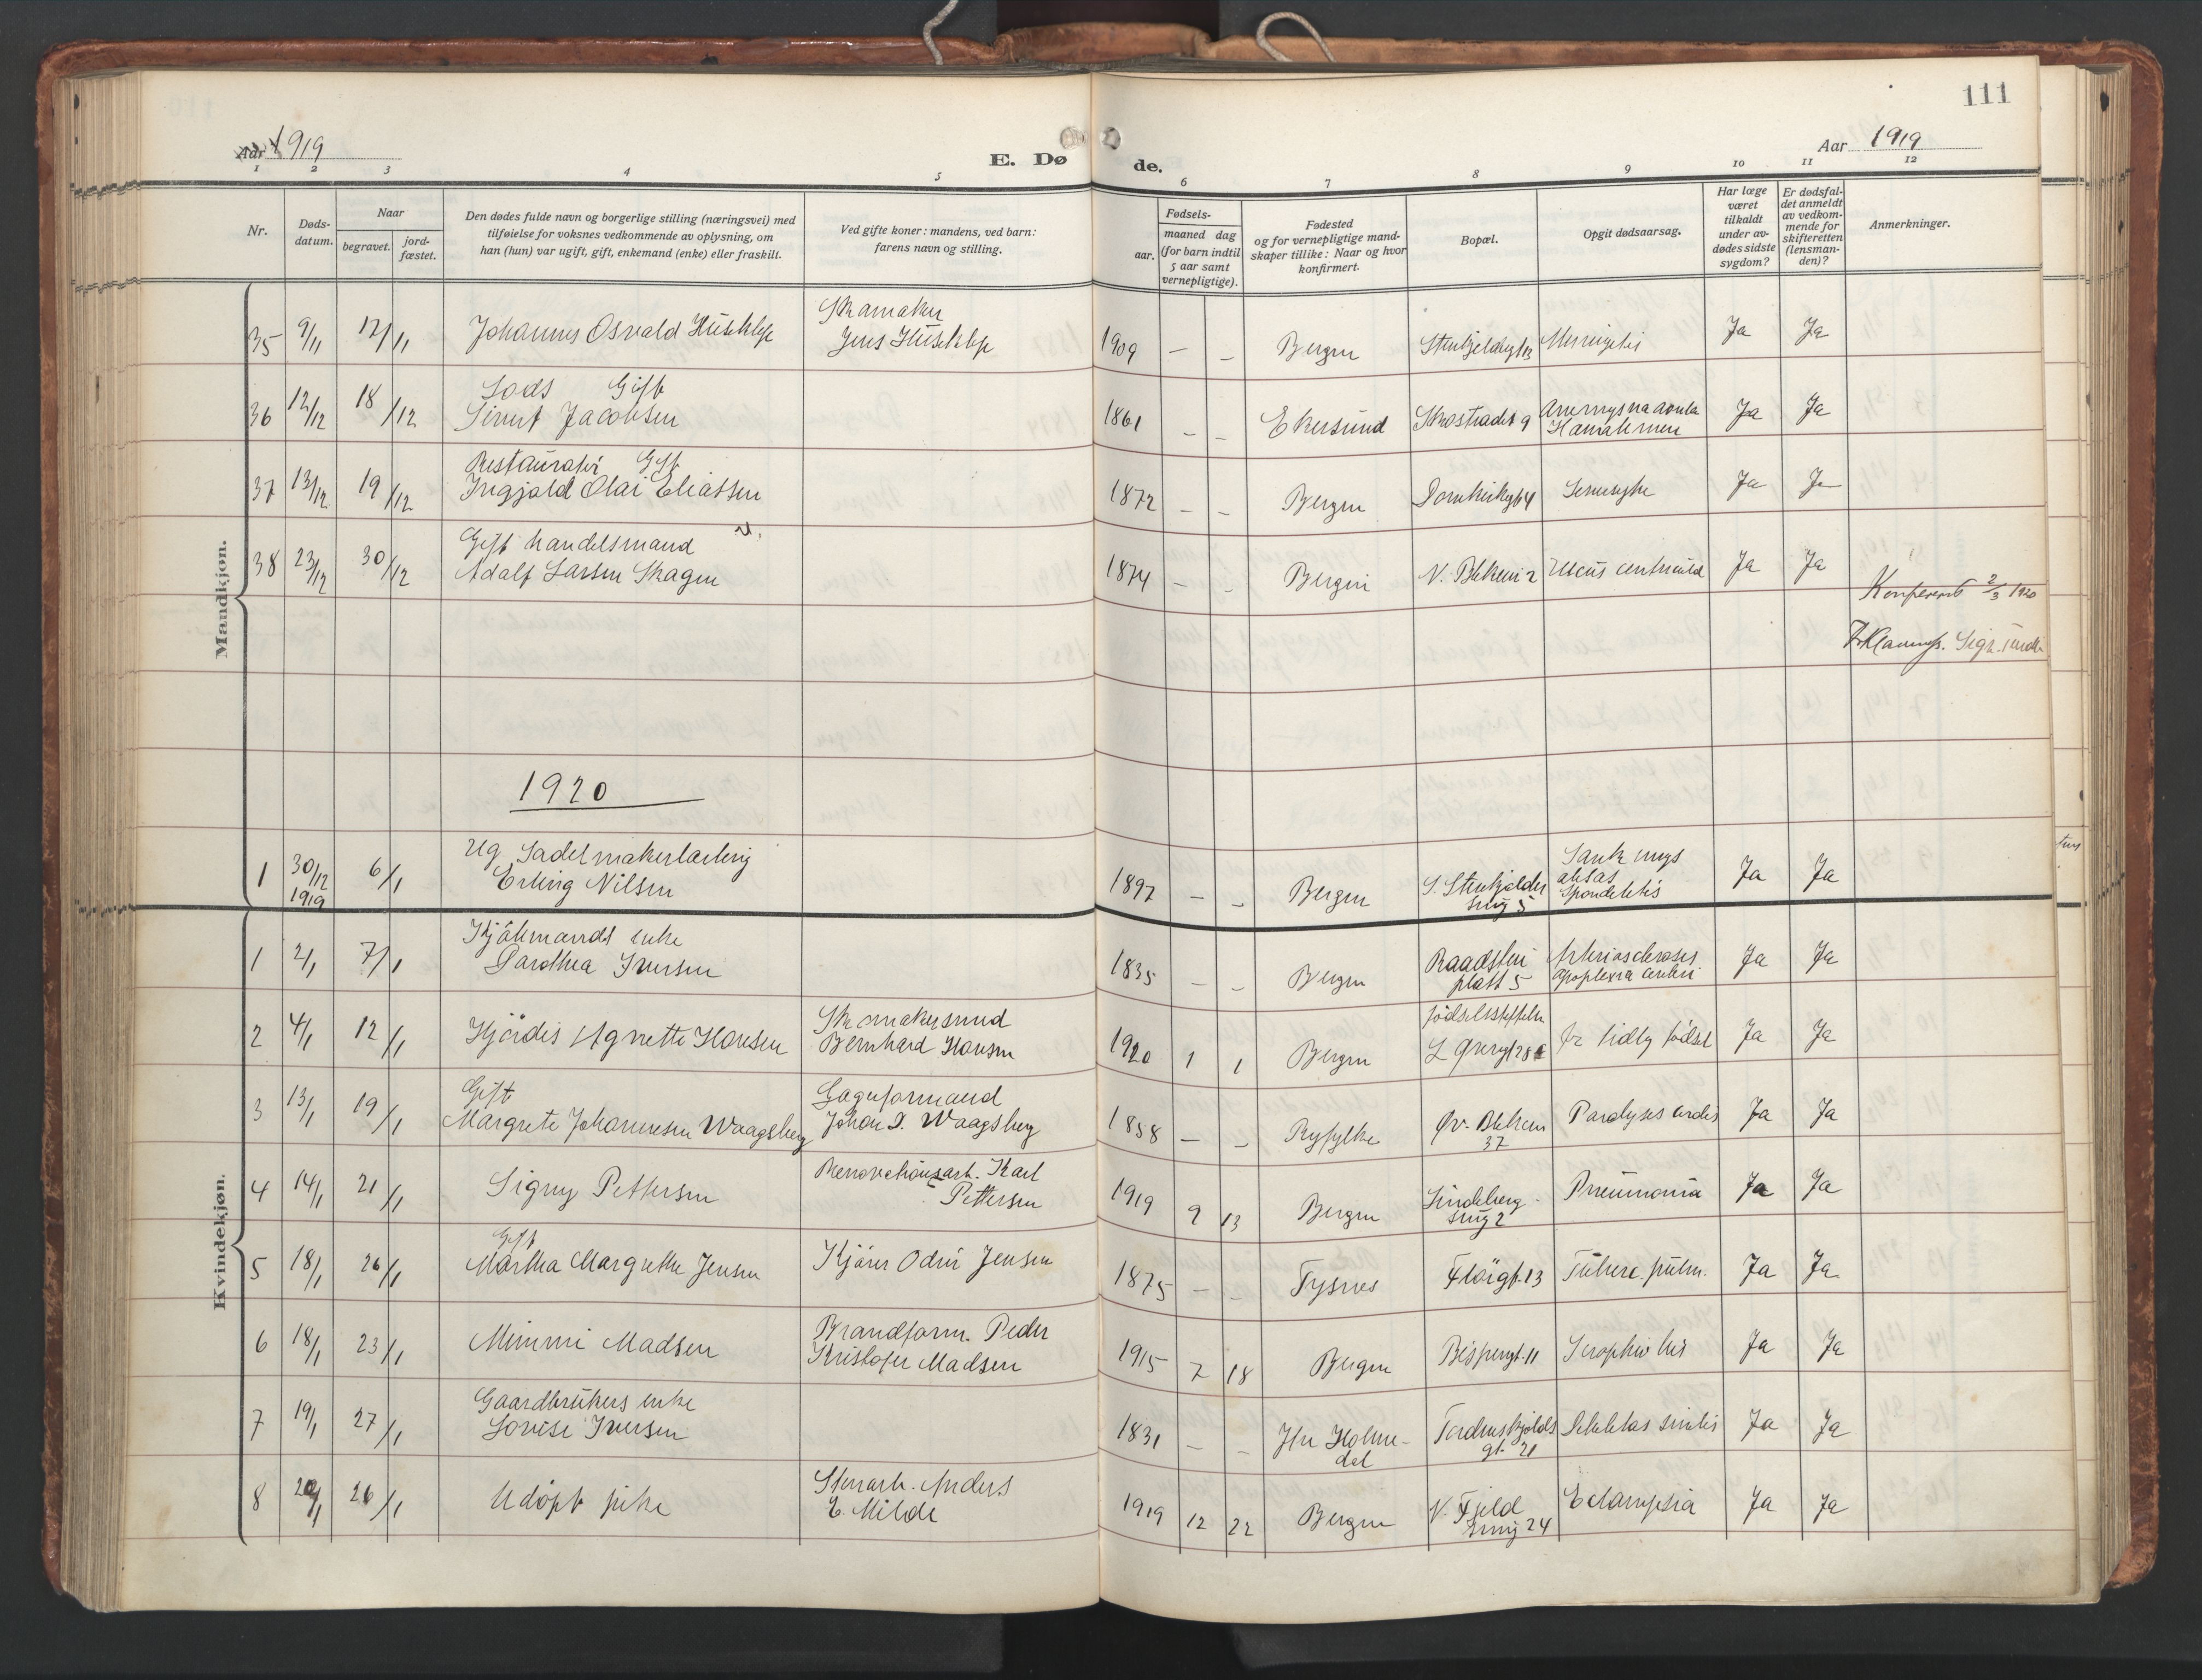 111
Aar 1919
E. Dø
de.
Aar 1919
1 2 3 4 5 6 7 8 9 10 11 12
Nr.
Døds-
datum.
Naar
begravet.
jord-
fæstet.
Den dødes fulde navn og borgerlige stilling (næringsvei) med
tilføielse for voksnes vedkommende av oplysning, om
han (hun) var ugift, gift, enkemand (enke) eller fraskilt.
Ved gifte koner: mandens, ved barn:
farens navn og stilling.
Fødsels-
aar.
maaned dag
(for barn indtil
5 aar samt
vernepligtige).
Fødested
og for vernepligtige mand-
skaper tillike: Naar og hvor
konfirmert.
Bopæl.
Opgit dødsaarsag.
Har læge
været
tilkaldt
under av-
dødes sidste
sygdom?
Er dødsfal-
det anmeldt
av vedkom-
mende for
skifteretten
(lensman-
den)?
Anmerkninger.
Mandkjøn.
35 9/11 12/11 Johannes Osvald Huseklep
Skomaker
Jens Huseklep
1909 – – Bergen Ja Ja
36 12/12 18/12 Lods Gift
Sivert Jacobsen
1861 – – Ekersund Skostrædet 9 Ja Ja
37 13/12 19/12 Restauratør Gift
Ingjald Olai Eliassen
1872 – – Bergen Domkirkegt 4 Ja Ja
38 23/12 30/12 Gift handelsmand
Adolf Larsen Skagen
1874 – – Bergen N. Blekevei 2 Ulcus ventriculi Ja Ja
Konferert 2/3 1920
1920
1 30/12 1919 6/1 Ug. Sadelmakerlærling
Erling Nilsen
1897 – – Bergen S. Stenkjelder
smug 5
Spondelitis
Ja Ja
Kvindekjøn.
1 2/1 7/1 Kjølmands enke
Dorothea Iversen
1835 – – Bergen Raadstu
plass 5
Arteriosclerosis
apoplexia cerebri
Ja Ja
2 4/1 12/1 Hjørdis Agnette Hansen
Skomakersvend
Bernhard Hansen
1920 1 1 Bergen
fødselsstiftelsen
for tidlig fødsel Ja Ja
3 13/1 19/1 Gift
Margrete Johannesen Waagsberg
Johan I. Waagsberg
1858 – – Ryfylke Øv. Blekevei
37
Paralysis cordis Ja Ja
4 14/1 21/1 Signy Pettersen
Renovationsarb. Karl
Pettersen
1919 9 13 Bergen Lindeberg
smug 2
Pneumonia Ja Ja
5 18/1 26/1 Gift
Martha Margrethe Jensen
Kjører Odin Jensen
1875 – – Tysnes Fløigt. 13 Tuberc. pulm. Ja Ja
6 18/1 23/1 Mimmi Madsen
Brandform. Peder
Kristofer Madsen
1915 7 18 Bergen Bispengt. 11 Ja Ja
7 19/1 27/1 Gaardbrukers enke
Lovise Iversen
1831 – – Ytre Holme-
dal
Tordenskjolds
gt. 21
Debilitas senilis Ja Ja
8 20/1 26/1 Udøpt pike
Stenarb. Anders
E. Milde
1919 12 22 Bergen N. Fjeld
smug 24
Eclampsia Ja Ja